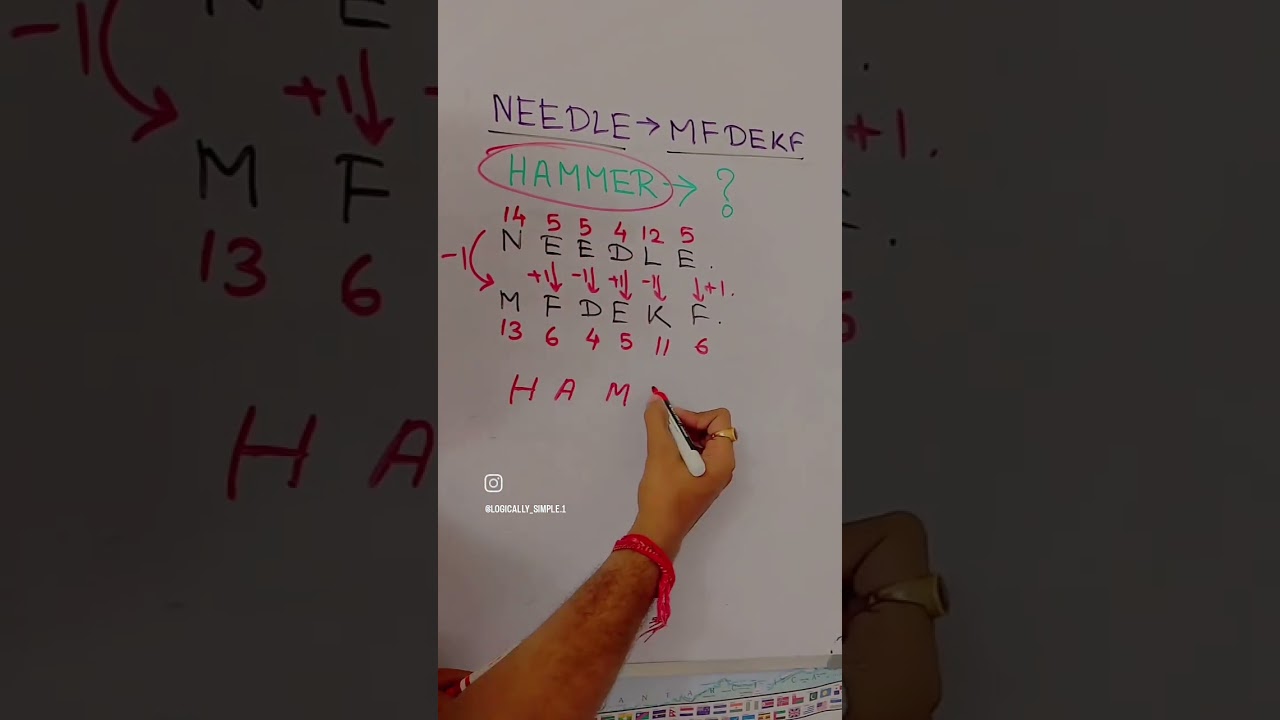 NEEDLE → MFDEKF
HAMMER → ?
14 5 5 4 12 5
N E E D L E .
-1 +1 -1 +1 -1 +1.
M F D E K F.
13 6 4 5 11 6
H A M
@LOGICALLY_SIMPLE.1